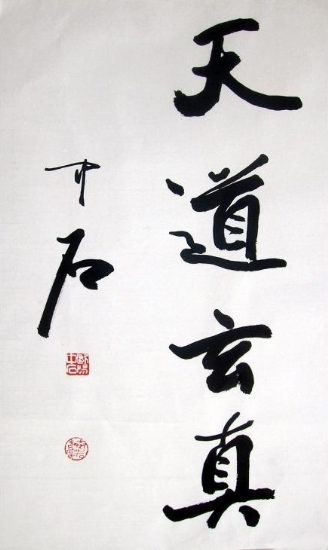 天道玄真
中石